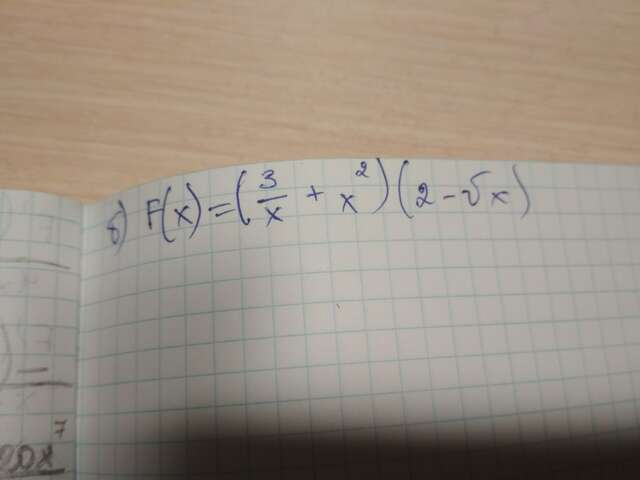 б) F(x) = (3/x + x²)(2 - √x)
x⁷